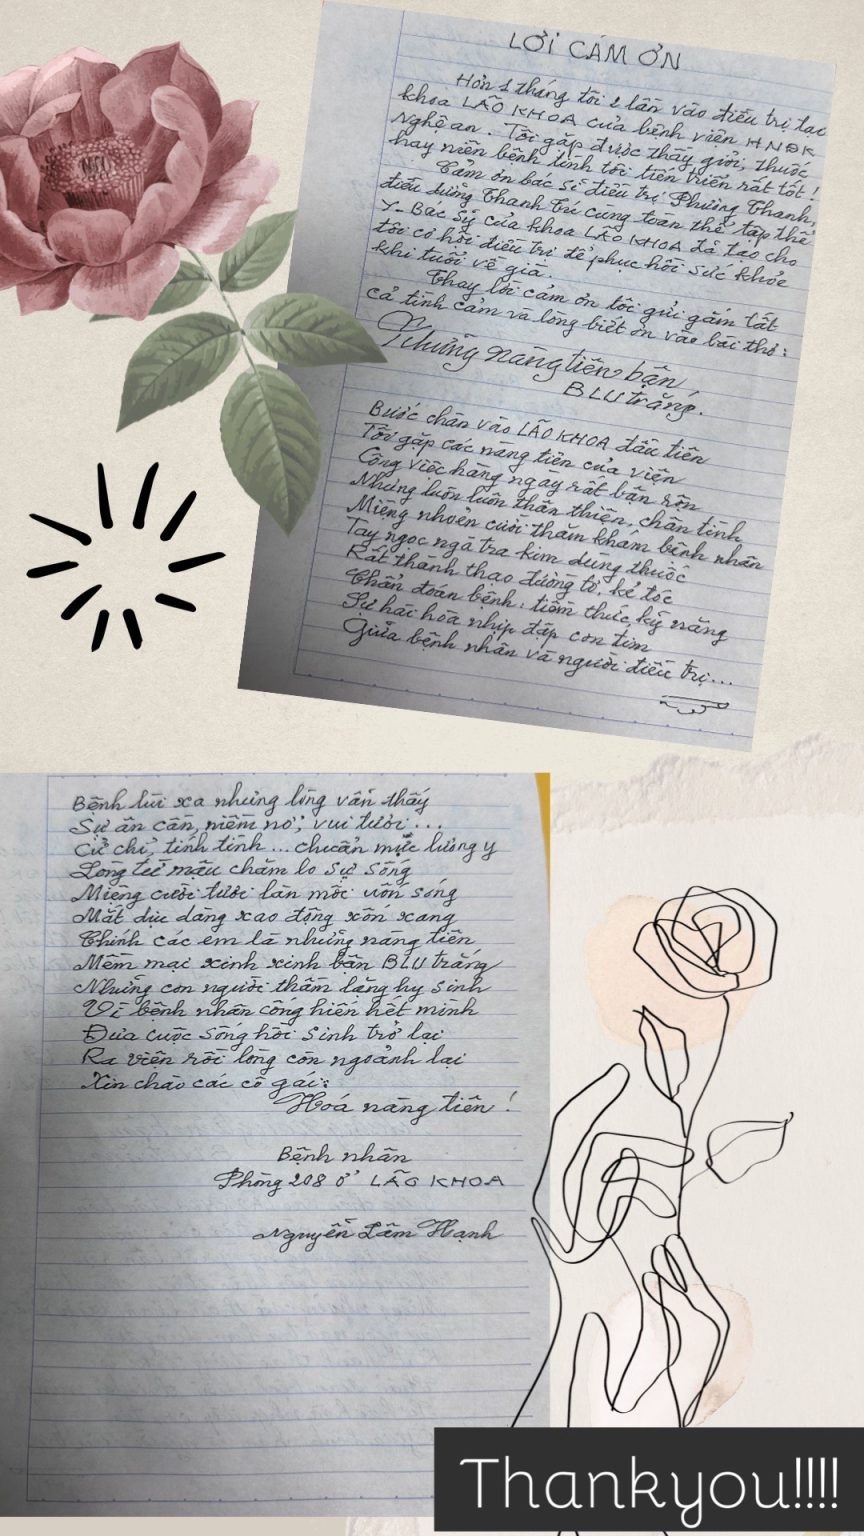 LỜI CÁM ƠN
Hơn 1 tháng tôi 2 lần vào điều trị tại
khoa LÃO KHOA của bệnh viện HNĐK
Nghệ an. Tôi gặp được thầy giỏi, thuốc
hay niên bệnh tình tôi tiến triển rất tốt!
Cảm ơn bác sĩ điều trị Phương Thanh,
điều dưỡng Thanh Trú cùng toàn thể tập thể
Y-Bác Sỹ của khoa LÃO KHOA đã tạo cho
tôi cơ hội điều trị để phục hồi sức khỏe
khi tuổi về già.
Thay lời cảm ơn tôi gửi gắm tất
cả tình cảm và lòng biết ơn vào bài thơ:
Những nàng tiên bận
BLU trắng.
Bước chân vào LÃO KHOA đầu tiên
Tôi gặp các nàng tiên của viện
Công việc hàng ngày rất bận rộn
Nhưng luôn luôn thân thiện, chân tình
Miệng nhoẻn cười thăm khám bệnh nhân
Tay ngọc ngà tra kim dùng thuốc
Rất thành thạo đường tơ, kẻ tóc
Chẩn đoán bệnh: tiềm thức, kỹ năng
Sự hài hòa nhịp đập con tim
Giữa bệnh nhân và người điều trị...
Bệnh lùi xa nhưng lòng vẫn thấy
Sự ân cần, niềm nở, vui tươi...
Cử chỉ, tính tình... chuẩn mực lương y
Lòng từ mẫu chăm lo sự sống
Miệng cười tươi làn môi uốn sóng
Mắt dịu dàng xao động xốn xang
Chính các em là những nàng tiên
Mềm mại xinh xinh bận BLU trắng
Những con người thầm lặng hy sinh
Vì bệnh nhân cống hiến hết mình
Đưa cuộc sống hồi sinh trở lại
Ra viện rồi lòng còn ngoảnh lại
Xin chào các cô gái:
Hoá nàng tiên!
Bệnh nhân
Phòng 208 ở LÃO KHOA
Nguyễn Lâm Hạnh
Thankyou!!!!